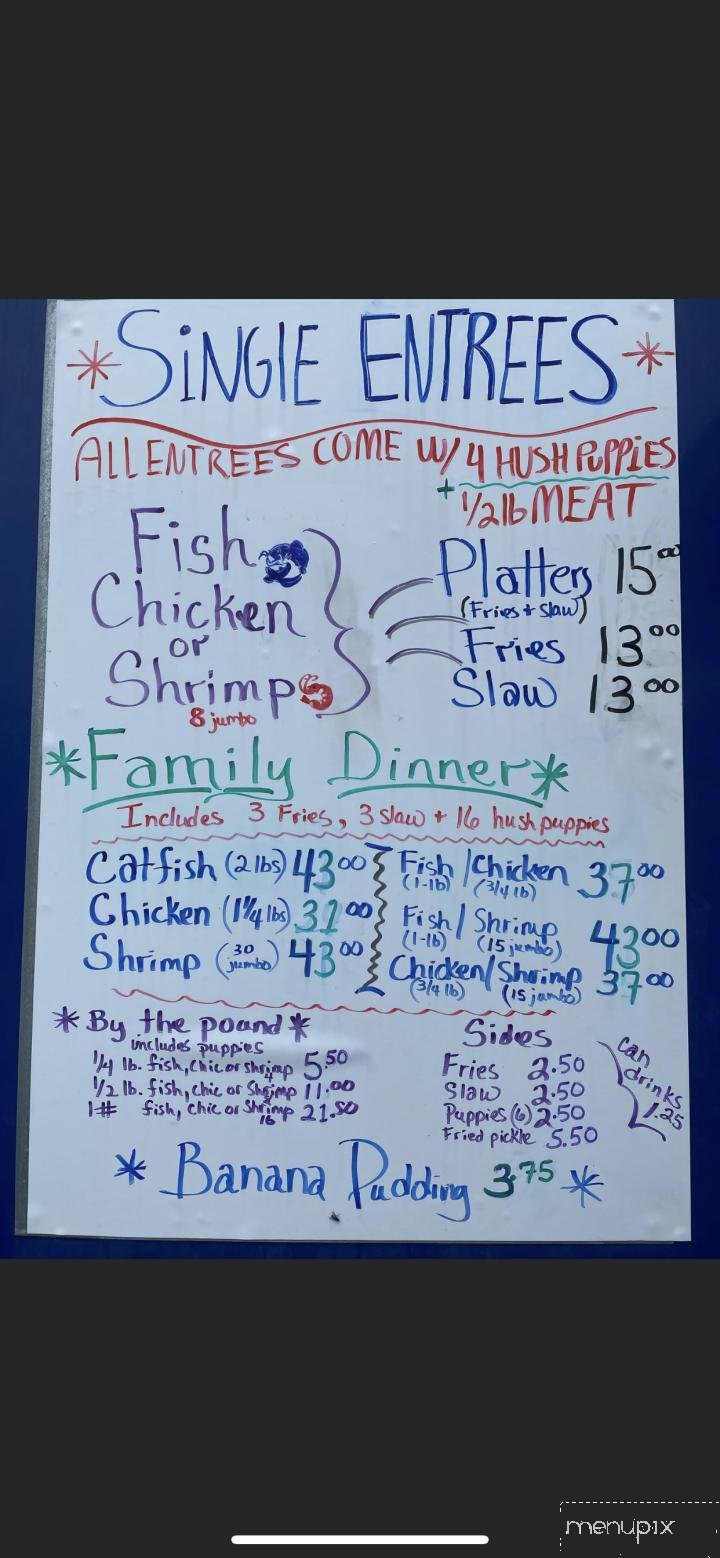 * SiNGlE ENTREES *
ALL ENTREES COME W/ 4 HUSH PUPPIES
+ 1/2 lb MEAT
Fish
Chicken
or
Shrimp
8 jumbo
Platters 15⁰⁰
(Fries + Slaw)
Fries 13⁰⁰
Slaw 13⁰⁰
*Family Dinner*
Includes 3 Fries, 3 slaw + 16 hushpuppies
Catfish (2 lbs) 43⁰⁰
Chicken (1¼ lbs) 31⁰⁰
Shrimp (30 jumbo) 43⁰⁰
Fish/Chicken 37⁰⁰
(1-lb) (3/4 lb)
Fish/Shrimp 43⁰⁰
(1-lb) (15 jumbo)
Chicken/Shrimp 37⁰⁰
(3/4 lb) (15 jumbo)
* By the pound *
includes puppies
1/4 lb. fish, chic or shrimp 5.50
4
1/2 lb. fish, chic or Shrimp 11.00
8
1# fish, chic or Shrimp 21.50
16
Sides
Fries 2.50
Slaw 2.50
Puppies (6) 2.50
Fried pickle 5.50
can
drinks
1.25
* Banana Pudding 3.75 *
menupix